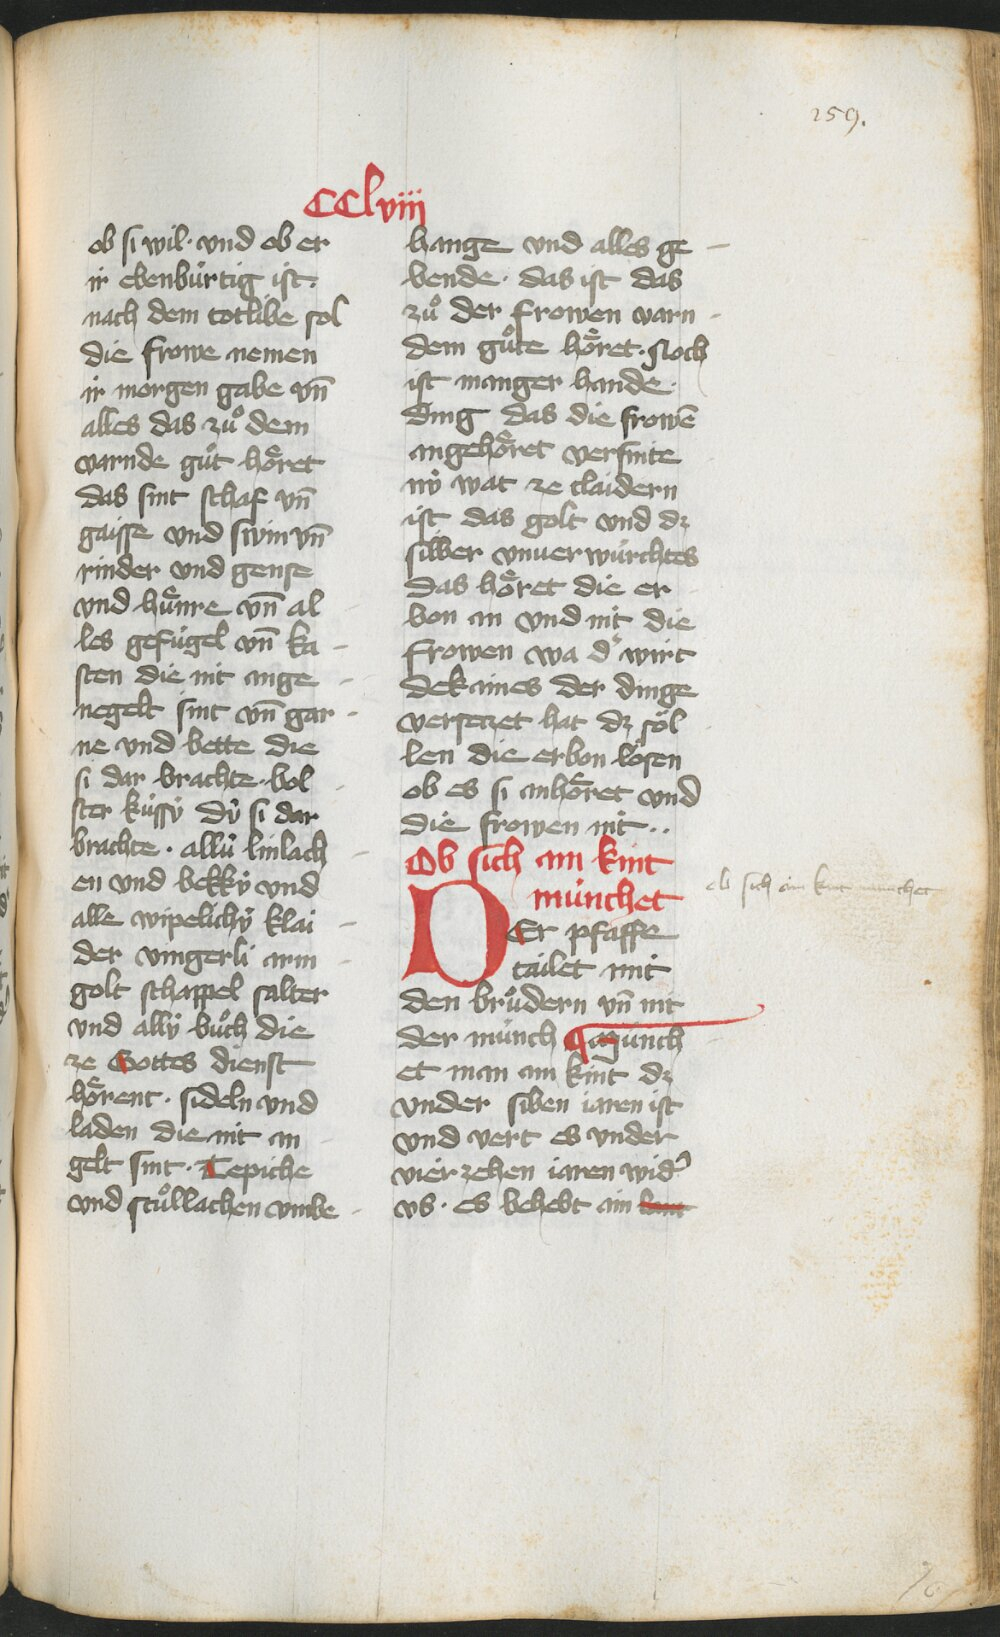 259.
CClviii
ob si wil· vnd ob er
ir ebenbúrtig ist·
nach dem totlibe sol
die frowe nemen
ir morgen gabe vn̄
alles das zuͦ dem
varnde guͦt hoͤret
das sint schaf vn̄
gaisse vnd swin vn̄
rinder vnd gense
vnd huͤnre vn̄ al
les gefúgel vn̄ ka
sten die nit ange
negelt sint vn̄ gar
ne vnd bette die
si dar brachte· bol
ster kússy̍ dy̍ si dar
brachte· allú linlach
en vnd bekky̍ vnd
alle wipelichy̍ klai
der vingerli arm
golt schappel salter
vnd ally̍ buͦch die
ze Gottes dienst
hoͤrent· sideln vnd
laden die nit an
gelt sint· Tepiche
vnd stuͦllachen vmbe
hange vnd alles ge
bende· das ist das
zuͦ der frowen varn
dem guͦte hoͤret· Noch
ist manger hande·
Ding das die frowē
angehoͤret versnite
ny̍ wat ze claidern
ist das golt vnd dz
silber vnuerwúrchtes
das hoͤret die er
bon an vnd nit die
frowen wa d' wirt
dekaines der dinge
versetzet hat dz soͤl
len die erbon loͤsen
ob es si anhoͤret vnd
die frowen nit··
Ob sich ain kint
múnchet
DEr pfaffe
tailet mit
den bruͦdern vn̄ nit
der múnch Múnch
et man ain kint dz
vnder siben iaren ist
vnd vert es vnder
vierzehen iaren wid'
vs· es behebt ain
ob sich ain kint munchet